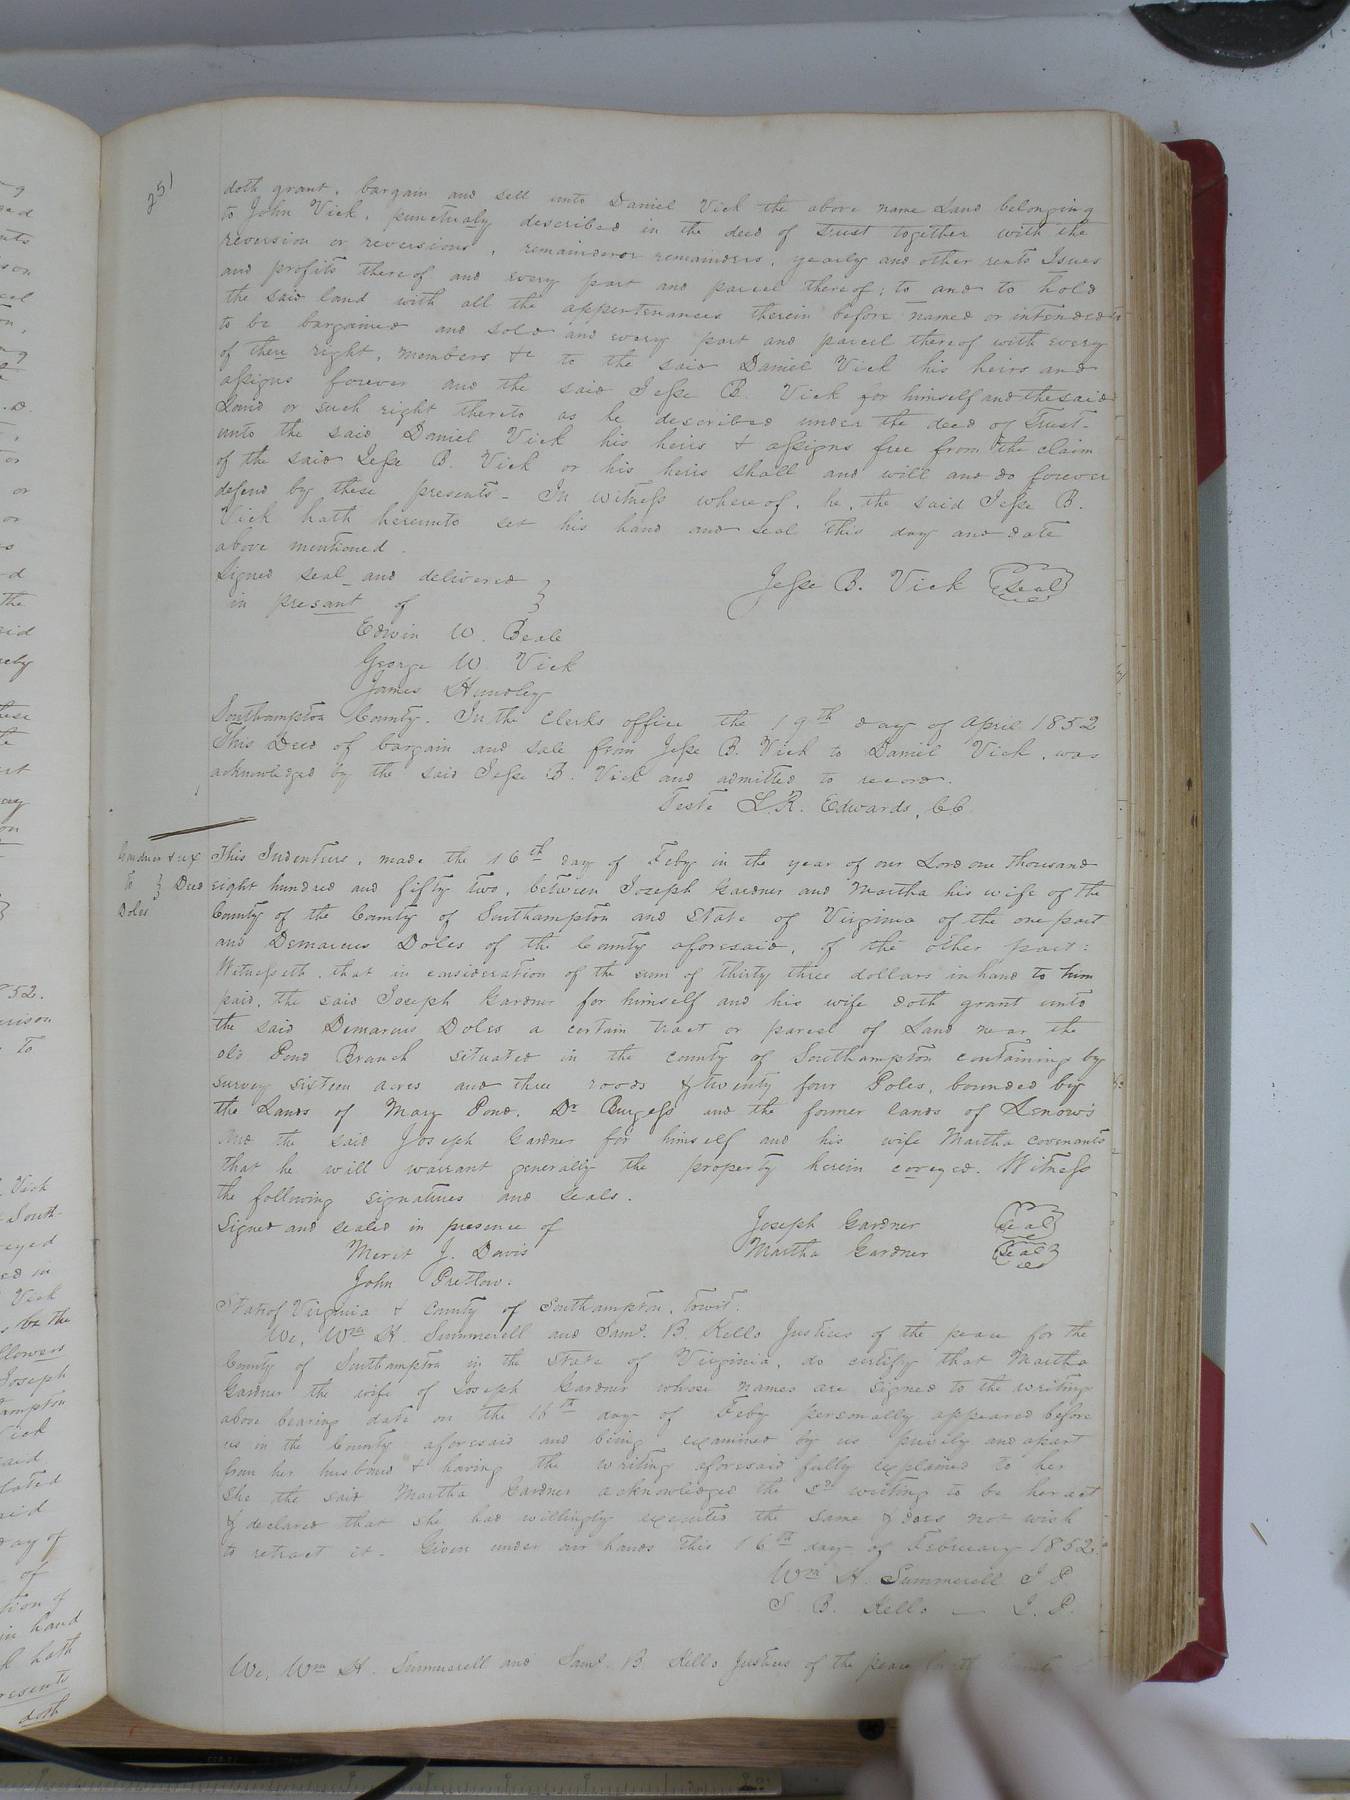 251
doth grant, bargain and sell unto Daniel Vick the above name Land belonging
to John Vick, punctualy described in the deed of Trust together with the
reversion or reversions, remainderor remainders, yearly and other rents Isues
and profits thereof and every part and parcel thereof; to and to hold
the said land with all the appertenances therein before named or intended
to be bargained and sold and every part and parcel thereof with every
of there right, members &c to the said Daniel Vick his heirs and
assigns forever and the said Jesse B. Vick for himself and the said
Land or such right thereto as he described under the deed of Trust-
unto the said Daniel Vick his heirs & assigns free from the claim
of the said Jesse B. Vick or his heirs shall and will and do forever
defend by these presents- In witness whereof, he, the said Jesse B.
Vick hath hereunto set his hand and seal this day and date
above mentioned.
Signed seal and delivered
in presant of
Jesse B. Vick Seal
Edwin W. Beale
George W. Vick
James Hundley
Southampton County. In the Clerks office the 19th day of April 1852
This Deed of bargain and sale from Jesse B. Vick to Daniel Vick, was
acknowledged by the said Jesse B. Vick and admitted to record.
Teste L.R. Edwards, CC
Gardner & ux
to } Deed
Doles
This Indenture, made the 16th day of Feby in the year of our Lord one thousand
eight hundred and fifty two, between Joseph Gardner and Martha his wife of the
County of the County of Southampton and State of Virginia of the one part
and Demarcus Doles of the County aforesaid, of the other part:
Witnesseth, that in consideration of the sum of thirty three dollars in hand to him
paid, the said Joseph Gardner for himself and his wife doth grant unto
the said Demarcus Doles a certain tract or parcel of Land near the
old Pond Branch situated in the county of Southampton containing by
survey sixteen acres and three roods & twenty four Poles, bounded by
the Lands of Mary Pond, Dr Burgess and the former lands of Lenow's
And the said Joseph Gardner for himself and his wife Martha covenants
that he will warrant generally the property herein coveyed. Witness
the following signatures and seals.
Signed and sealed in presence of
Joseph Gardner Seal
Martha Gardner Seal
Merit J. Davis
John Pretlow.
State of Virginia & County of Southampton, towit:
We, Wm H. Summerell and Saml. B. Kello Justices of the peace for the
County of Southampton in the State of Virginia, do certify that Martha
Gardner the wife of Joseph Gardner whose names are signed to the writing
above bearing date on the 16th day of Feby personally appeared before
us in the County aforesaid and being examined by us privily and apart
from her husband & having the writing aforesaid fully explained to her
she the said Martha Gardner acknowledged the sd writing to be her act
& declared that she had willingly executed the same & does not wish
to retract it. Given under our hands this 16th day of February 1852.
Wm H. Summerell J P.
S. B. Kello - J. P.
We, Wm H. Summerell and Saml. B. Kello Justices of the peace